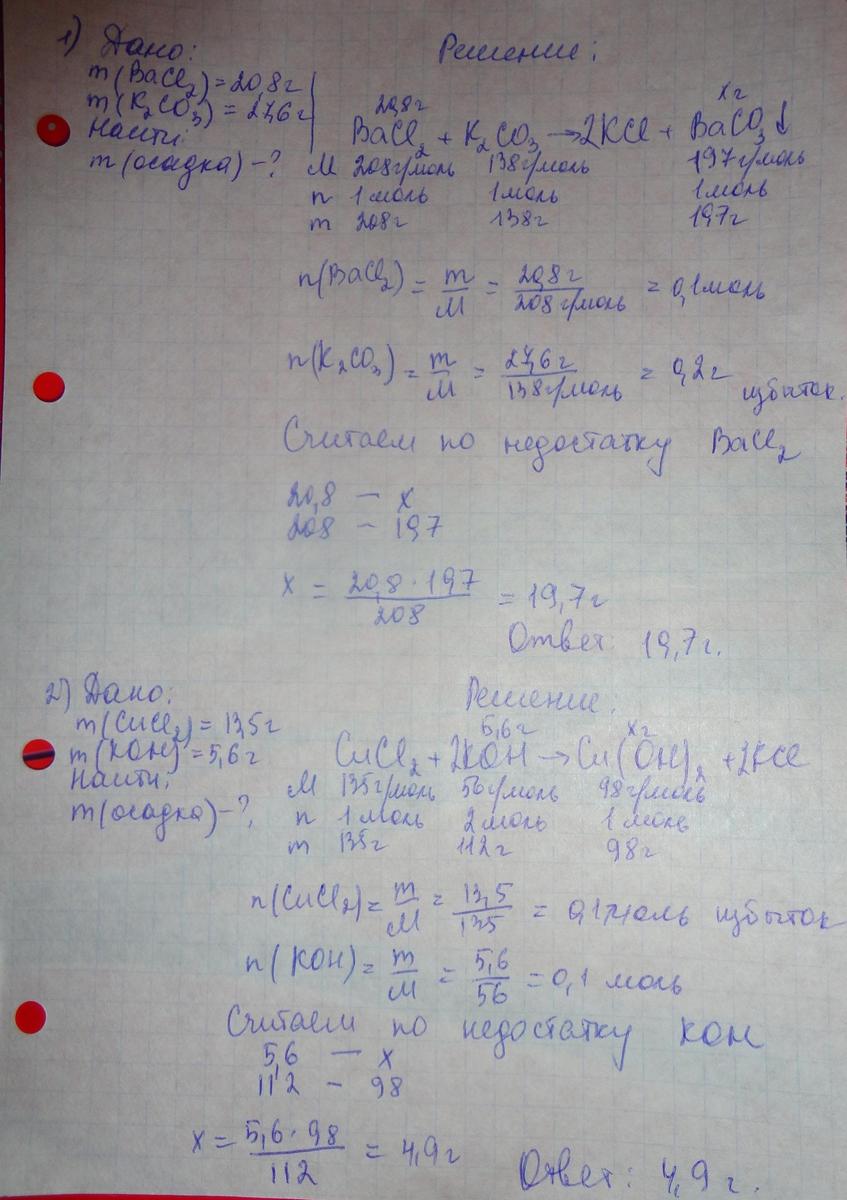 1) Дано: Решение:
m(BaCl2) = 20,8г
m(K2CO3) = 27,6г
Найти:
m(осадка) - ?
20,8г xг
BaCl2 + K2CO3 → 2KCl + BaCO3↓
M 208г/моль 138г/моль 197г/моль
n 1моль 1моль 1моль
m 208г 138г 197г
n(BaCl2) = m/M = 20,8г/208г/моль = 0,1моль
n(K2CO3) = m/M = 27,6г/138г/моль = 0,2г избыток.
Считаем по недостатку BaCl2
20,8 — x
208 — 197
x = 20,8 · 197/208 = 19,7г
Ответ: 19,7г.
2) Дано: Решение:
m(CuCl2) = 13,5г
m(KOH) = 5,6г
Найти:
m(осадка) - ?
5,6г xг
CuCl2 + 2KOH → Cu(OH)2 + 2KCl
M 135г/моль 56г/моль 98г/моль
n 1моль 2моль 1моль
m 135г 112г 98г
n(CuCl2) = m/M = 13,5/135 = 0,1моль избыток
n(KOH) = m/M = 5,6/56 = 0,1 моль
Считаем по недостатку KOH
5,6 — x
112 — 98
x = 5,6 · 98/112 = 4,9г
Ответ: 4,9г.